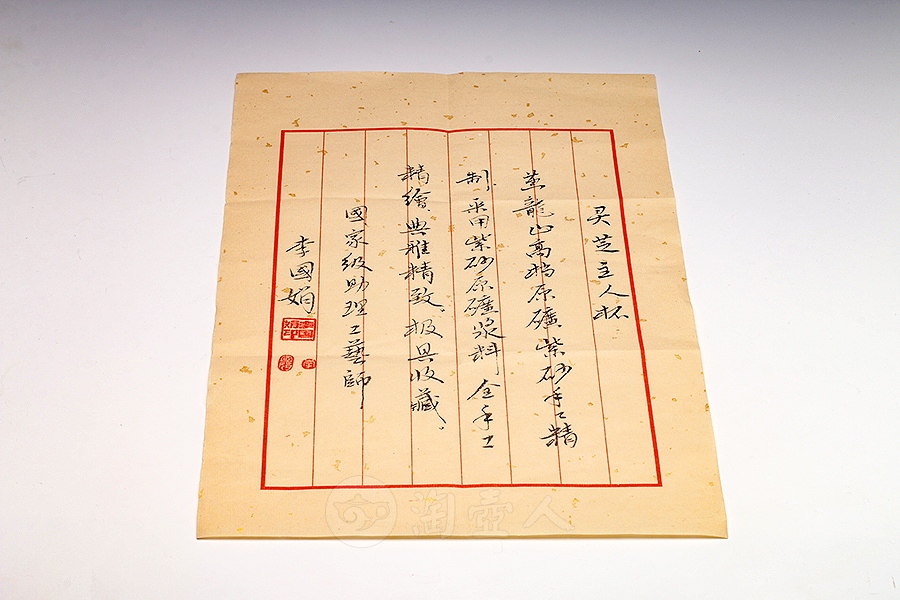 灵芝主人杯
黄龍山高档原礦紫砂手工精
制、采用紫砂原礦浆料全手工
精繪、典雅精致、极具收藏、
國家级助理工藝師
李國娟
陶壶人